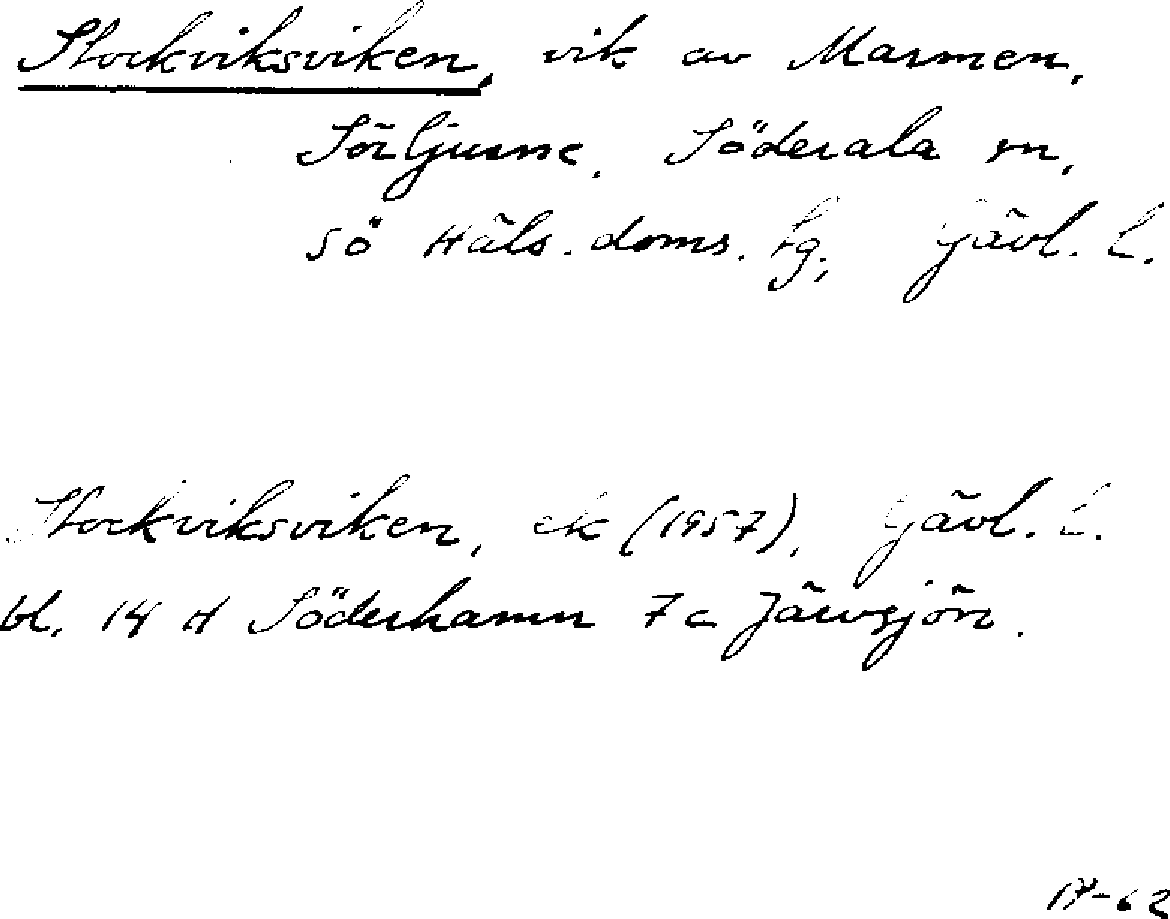 Stockviksviken, vik av Marmen,
Sörljusne, Söderala sn,
sö Häls. doms. tg, Gävl. l.
Stockviksviken, ek (1957), Gävl. l.
bl. 14 H Söderhamn 7 c Järvsjön.